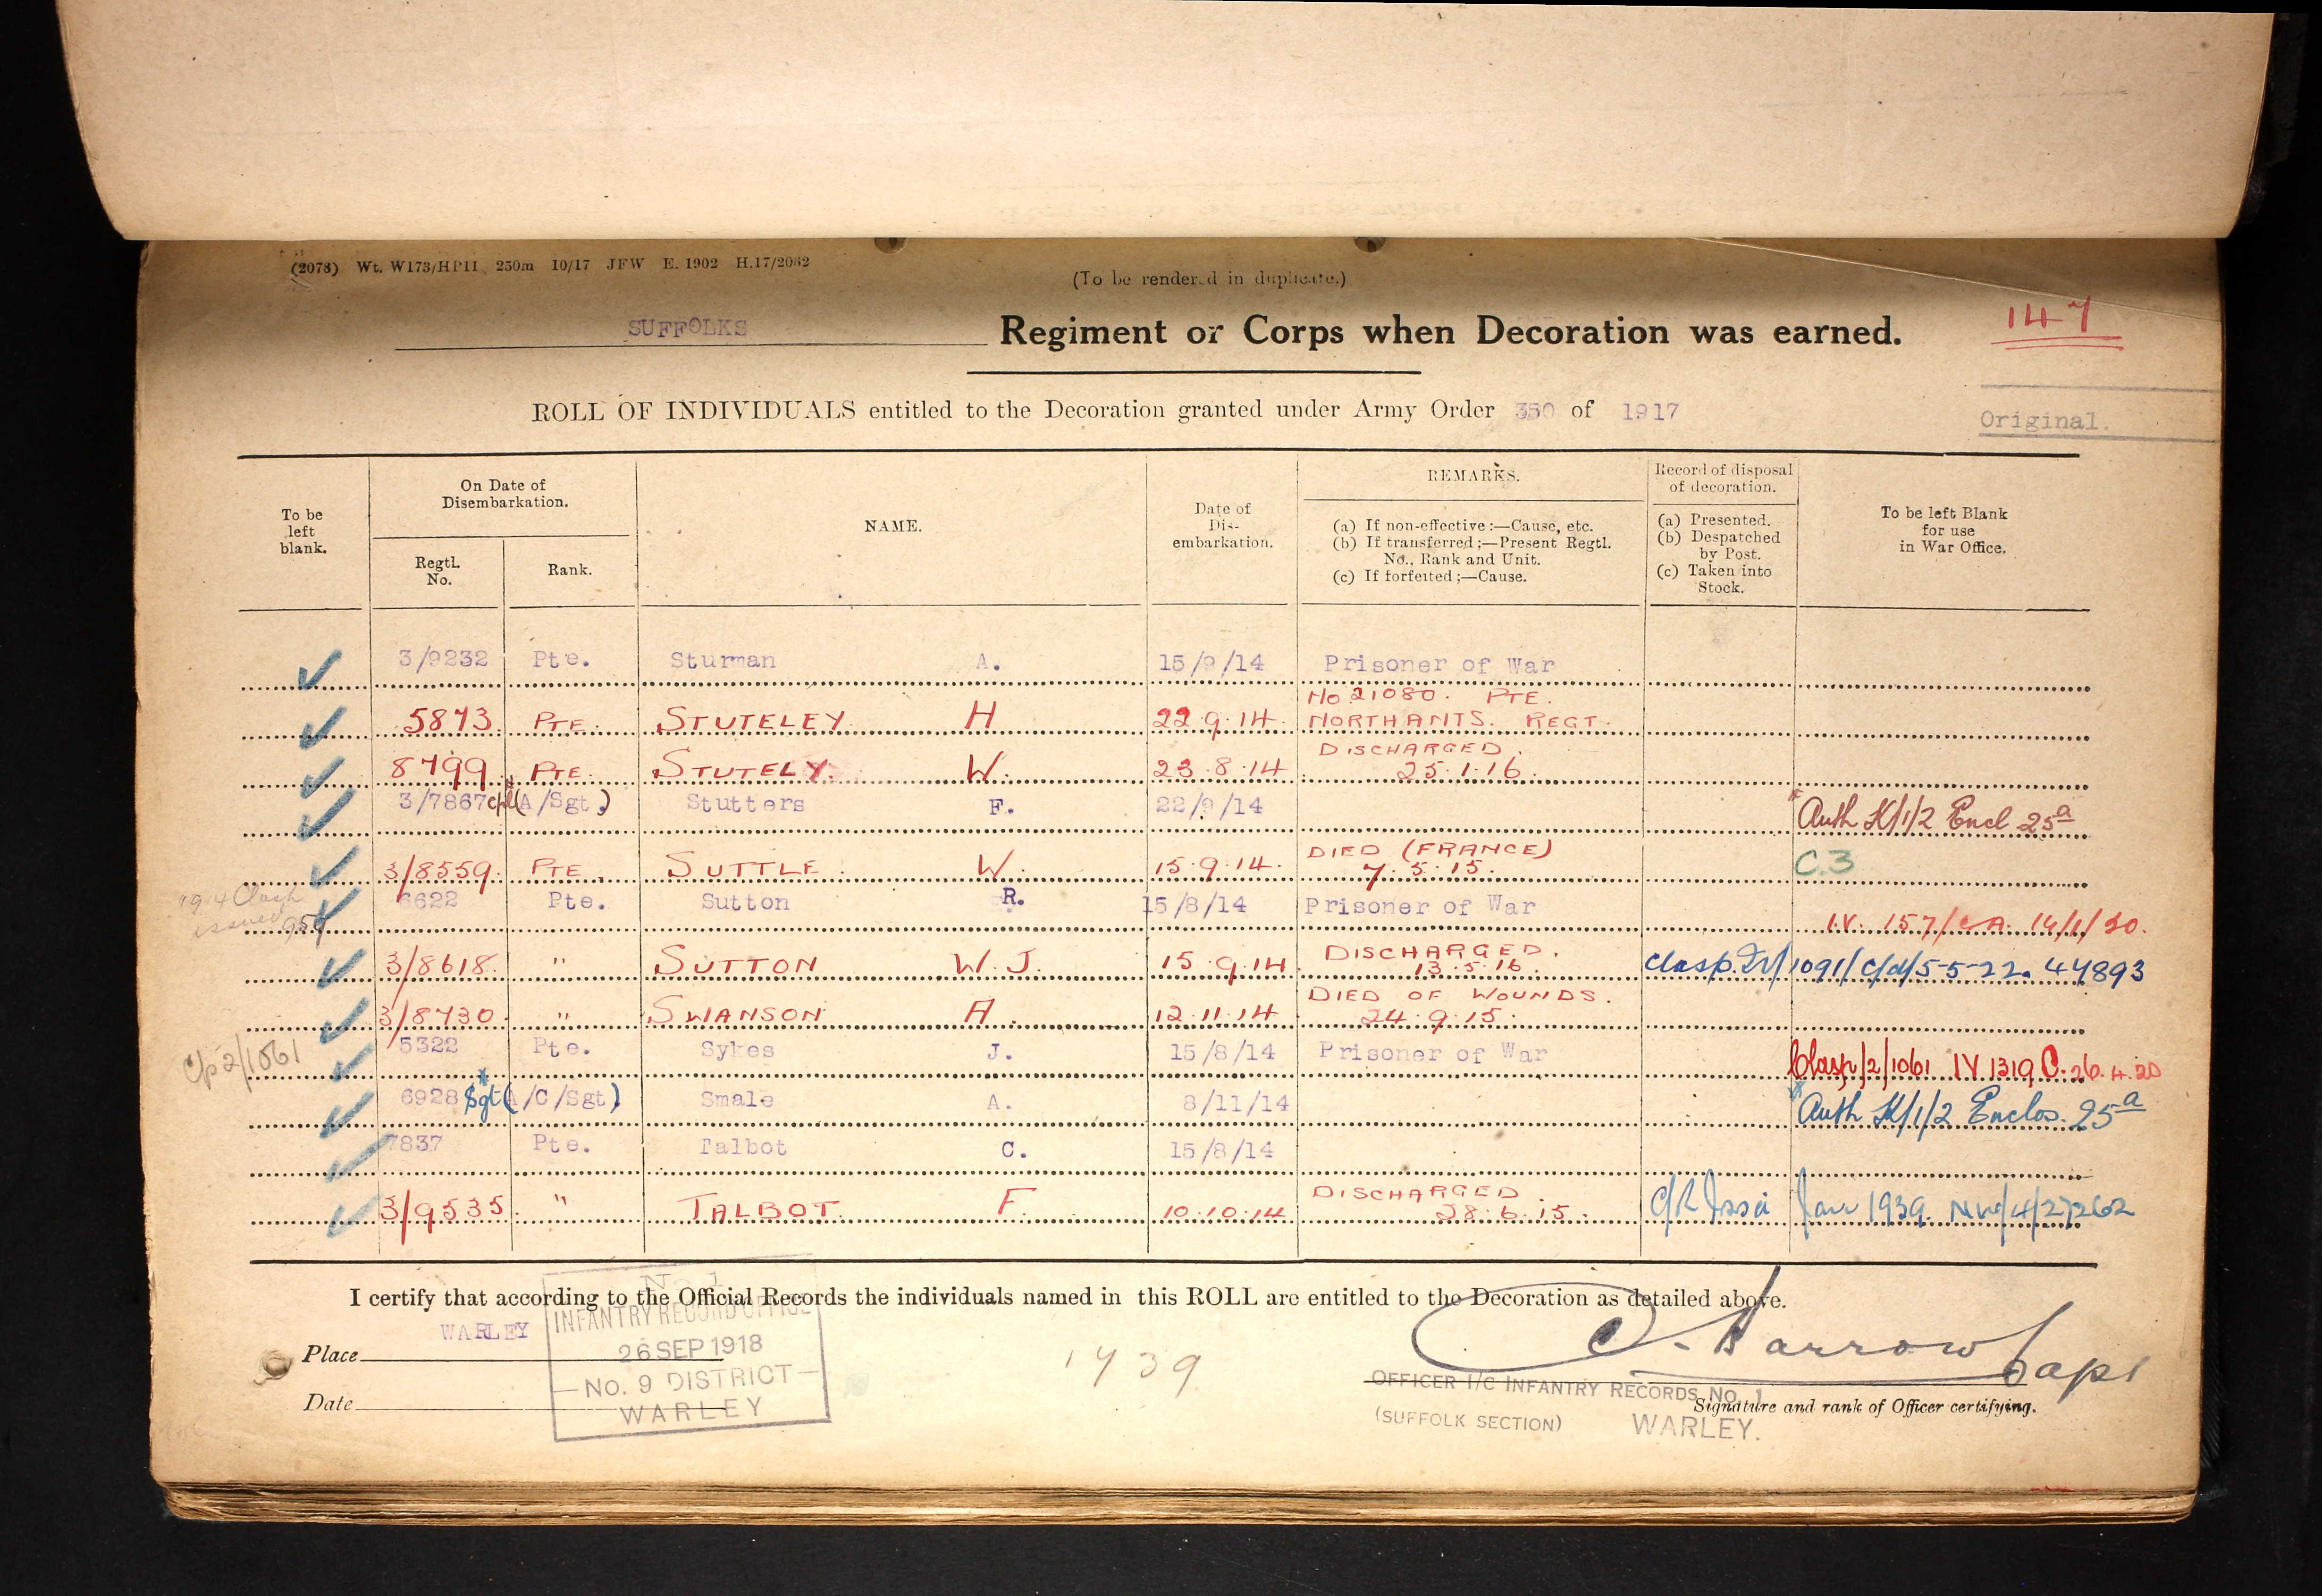 (2078) Wt. W173/HP11 250m 10/17 JFW E. 1902 H.17/2082
(To be rendered in duplicate.)
147
SUFFOLKS Regiment or Corps when Decoration was earned.
ROLL OF INDIVIDUALS entitled to the Decoration granted under Army Order 350 of 1917
Original.
To be left blank.
On Date of Disembarkation.
Regtl. No.
Rank.
NAME.
Date of Dis-embarkation.
REMARKS.
(a) If non-effective:—Cause, etc.
(b) If transferred;—Present Regtl. No., Rank and Unit.
(c) If forfeited;—Cause.
Record of disposal of decoration.
(a) Presented.
(b) Despatched by Post.
(c) Taken into Stock.
To be left Blank for use in War Office.
3/9232 Pte. Sturman A. 15/9/14 Prisoner of War
5873 PTE. STUTELEY H 22.9.14. No 21080. PTE. NORTHANTS. REGT.
8799 PTE. STUTELY. W. 23.8.14 DISCHARGED. 25.1.16.
3/7867 Cpl (A/Sgt.) Stutters F. 22/9/14 Auth K/1/2 Encl 25a
3/8559. PTE. SUTTLE. W. 15.9.14. DIED (FRANCE) 7.5.15. C.3
1914 Clash issued 954
6622 Pte. Sutton R. 15/8/14 Prisoner of War IV. 157/CA. 14/1/20.
3/8618. " SUTTON W.J. 15.9.14 DISCHARGED. 13.5.16. Clasp. 1091/ 5-5-22. 47893
3/8730. " SWANSON A. 12.11.14 DIED OF WOUNDS. 24.9.15.
C/p 2/1061
5322 Pte. Sykes J. 15/8/14 Prisoner of War Clasp/2/1061 IV 1319 C. 26.4.20
6928 Sgt (A/C/Sgt) Smale A. 8/11/14 Auth K/1/2 Enclos. 25a
7837 Pte. Talbot C. 15/8/14
3/9535. " TALBOT. F. 10.10.14 DISCHARGED. 28.6.15. C/R Issd Jan 1939. NW/4/27262
I certify that according to the Official Records the individuals named in this ROLL are entitled to the Decoration as detailed above.
No. 1
INFANTRY RECORD OFFICE
26 SEP 1918
NO. 9 DISTRICT
WARLEY
Place WARLEY
Date
1739
C. Barrow Capt
OFFICER I/C INFANTRY RECORDS NO. 1
(SUFFOLK SECTION) WARLEY.
Signature and rank of Officer certifying.